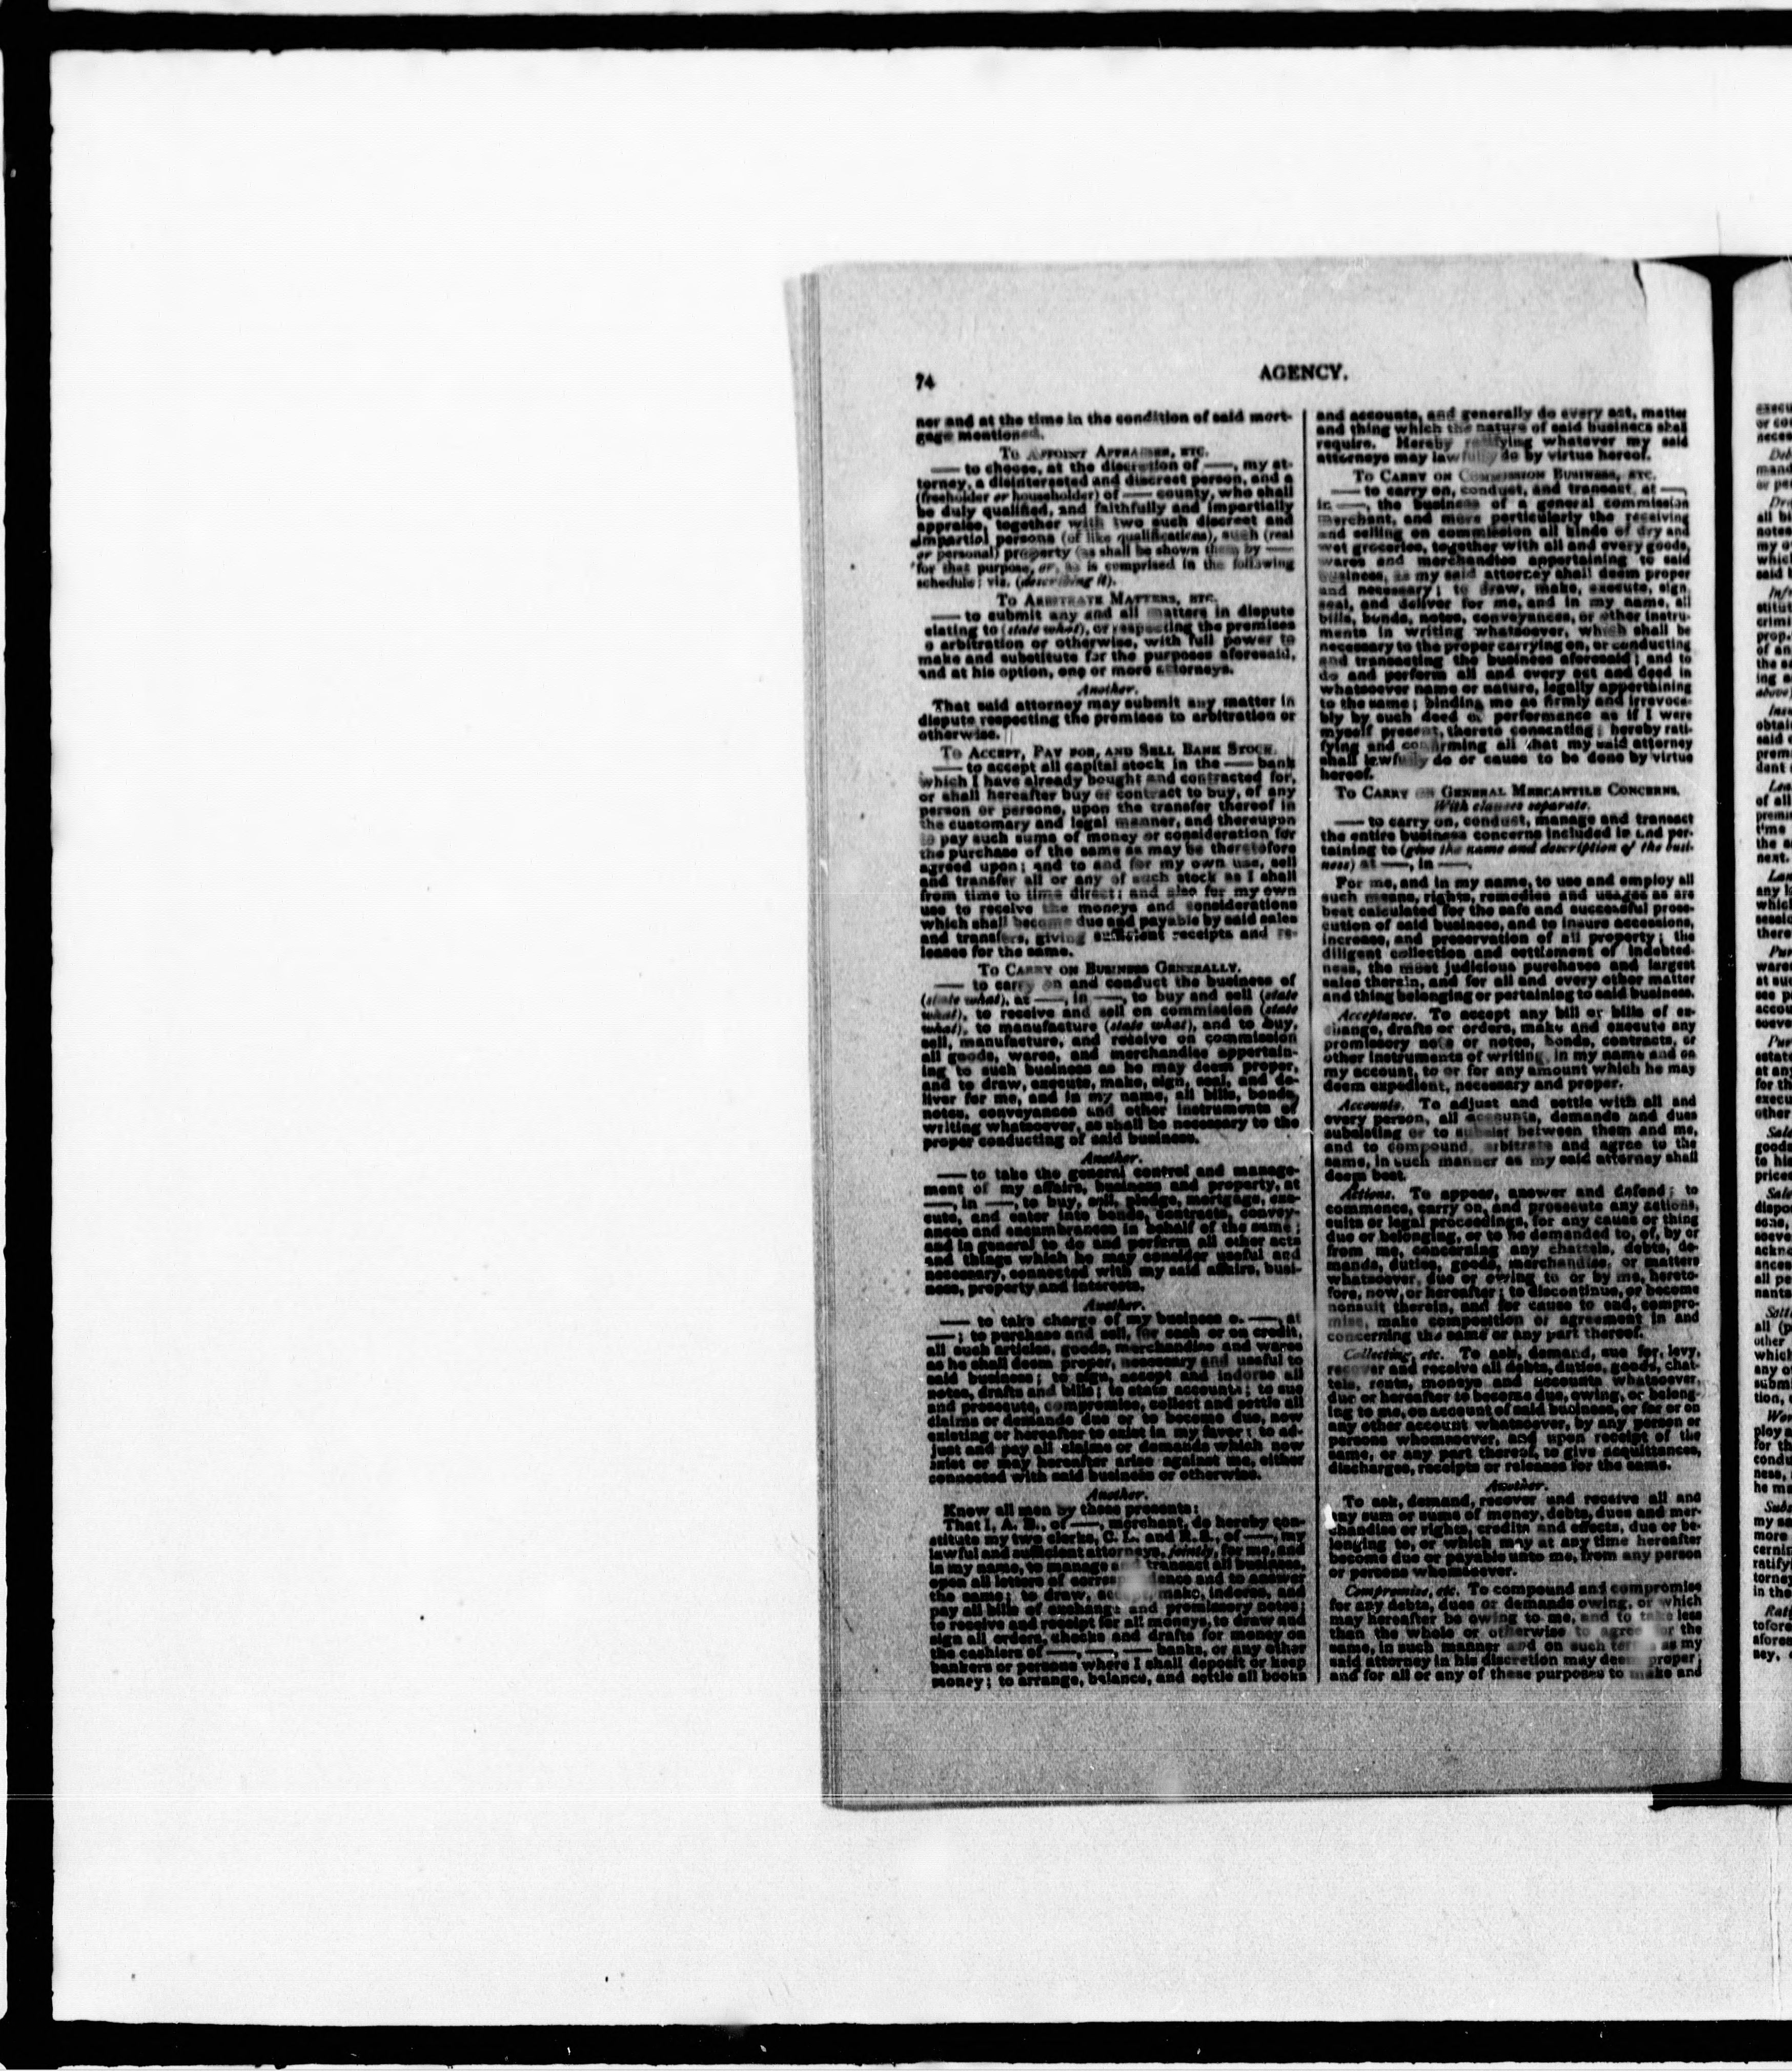 74
AGENCY.
ner and at the time in the condition of said mort-
gage mentioned.
TO APPOINT APPRAISER, ETC.
—— to choose, at the discretion of ——, my at-
torney, a disinterested and discreet person, and a
(freeholder or householder) of —— county, who shall
be duly qualified, and faithfully and impartially
appraise, together with two such discreet and
impartial persons (of like qualifications), such (real
or personal) property (as shall be shown them by ——
for that purpose, or, as is comprised in the following
schedule; viz. (describing it).
TO ARBITRATE MATTERS, ETC.
—— to submit any and all matters in dispute
elating to (state what), or respecting the premises
o arbitration or otherwise, with full power to
make and substitute for the purposes aforesaid,
and at his option, one or more attorneys.
Another.
That said attorney may submit any matter in
dispute respecting the premises to arbitration or
otherwise.
TO ACCEPT, PAY FOR, AND SELL BANK STOCK.
—— to accept all capital stock in the —— bank
which I have already bought and contracted for,
or shall hereafter buy or contract to buy, of any
person or persons, upon the transfer thereof in
the customary and legal manner, and thereupon
to pay such sums of money or consideration for
the purchase of the same as may be theretofore
agreed upon; and to and for my own use, sell
and transfer all or any of such stock as I shall
from time to time direct; and also for my own
use to receive the moneys and considerations
which shall become due and payable by said sales
and transfers, giving sufficient receipts and re-
leases for the same.
TO CARRY ON BUSINESS GENERALLY.
—— to carry on and conduct the business of
(state what), at ——, in ——, to buy and sell (state
what), to receive and sell on commission (state
what), to manufacture (state what), and to buy,
sell, manufacture, and receive on commission
all goods, wares, and merchandise appertain-
ing to such business as he may deem proper,
and to draw, execute, make, sign, seal, and de-
liver for me, and in my name, all bills, bonds,
notes, conveyances and other instruments of
writing whatsoever, as shall be necessary to the
proper conducting of said business.
Another.
—— to take the general control and manage-
ment of my affairs, business and property, at
——, in ——, to buy, sell, pledge, mortgage, exe-
cute, and enter into bonds, contracts, convey-
ances and encumbrances in behalf of the same;
and in general to do and perform all other acts
and things which he may consider useful and
necessary, connected with my said affairs, busi-
ness, property and interests.
Another.
—— to take charge of my business o. ——, at
——; to purchase and sell, for cash or on credit,
all such articles, goods, merchandise and wares
as he shall deem proper, necessary and useful to
said business; to sign, accept and indorse all
notes, drafts and bills; to state accounts; to sue
and prosecute, compromise, collect and settle all
claims or demands due or to become due, now
existing or hereafter to exist in my favor; to ad-
just and pay all claims or demands which now
exist or may hereafter arise against me, either
connected with said business or otherwise.
Another.
Know all men by these presents:
That I, A. B., of ——, merchant, do hereby con-
stitute my two clerks, C. L. and R. S., of ——, my
lawful and sufficient attorneys, jointly, for me, and
in my name, to manage and transact all business,
open all letters of correspondence and to answer
the same; to draw, accept, make, indorse, and
pay all bills of exchange and promissory notes;
to receive and receipt for all moneys, to draw and
sign all orders, checks and drafts for money on
the cashiers of ——, ——, —— banks, or any other
bankers or persons where I shall deposit or keep
money; to arrange, balance, and settle all books
and accounts, and generally do every act, matter
and thing which the nature of said business shall
require. Hereby ratifying whatever my said
attorneys may lawfully do by virtue hereof.
TO CARRY ON COMMISSION BUSINESS, ETC.
—— to carry on, conduct, and transact, at ——,
in ——, the business of a general commission
merchant, and more particularly the receiving
and selling on commission all kinds of dry and
wet groceries, together with all and every goods,
wares and merchandise appertaining to said
business, as my said attorney shall deem proper
and necessary; to draw, make, execute, sign,
seal, and deliver for me, and in my name, all
bills, bonds, notes, conveyances, or other instru-
ments in writing whatsoever, which shall be
necessary to the proper carrying on, or conducting
and transacting the business aforesaid; and to
do and perform all and every act and deed in
whatsoever name or nature, legally appertaining
to the same; binding me as firmly and irrevoca-
bly by such deed or performance as if I were
myself present, thereto consenting; hereby rati-
fying and confirming all that my said attorney
shall lawfully do or cause to be done by virtue
hereof.
TO CARRY ON GENERAL MERCANTILE CONCERNS.
With clauses separate.
—— to carry on, conduct, manage and transact
the entire business concerns included in and per-
taining to (give the name and description of the busi-
ness) at ——, in ——.
For me, and in my name, to use and employ all
such means, rights, remedies and usages as are
best calculated for the safe and successful prose-
cution of said business, and to insure accessions,
increase, and preservation of all property; the
diligent collection and settlement of indebted-
ness, the most judicious purchases and largest
sales therein, and for all and every other matter
and thing belonging or pertaining to said business.
Acceptance. To accept any bill or bills of ex-
change, drafts or orders, make and execute any
promissory note or notes, bonds, contracts, or
other instruments of writing, in my name and on
my account, to or for any amount which he may
deem expedient, necessary and proper.
Accounts. To adjust and settle with all and
every person, all accounts, demands and dues
subsisting or to subsist between them and me,
and to compound, arbitrate and agree to the
same, in such manner as my said attorney shall
deem best.
Actions. To appear, answer and defend; to
commence, carry on, and prosecute any actions,
suits or legal proceedings, for any cause or thing
due or belonging, or to be demanded to, of, by or
from me, concerning any chattels, debts, de-
mands, duties, goods, merchandise, or matters
whatsoever, due or owing to or by me, hereto-
fore, now, or hereafter; to discontinue, or become
nonsuit therein, and for cause to end, compro-
mise, make composition or agreement in and
concerning the same or any part thereof.
Collecting, etc. To ask, demand, sue for, levy,
recover and receive all debts, duties, goods, chat-
tels, rents, moneys and accounts whatsoever,
due or hereafter to become due, owing, or belong-
ing to me, on account of said business, or for or on
any other account whatsoever, by any person or
persons whomsoever, and upon receipt of the
same, or any part thereof, to give acquittances,
discharges, receipts or releases for the same.
Another.
To ask, demand, recover and receive all and
any sum or sums of money, debts, dues and mer-
chandise or rights, credits and effects, due or be-
longing to, or which may at any time hereafter
become due or payable unto me, from any person
or persons whomsoever.
Compromise, etc. To compound and compromise
for any debts, dues or demands owing, or which
may hereafter be owing to me, and to take less
than the whole or otherwise to agree for the
same, in such manner and on such terms as my
said attorney in his discretion may deem proper;
and for all or any of these purposes to make and